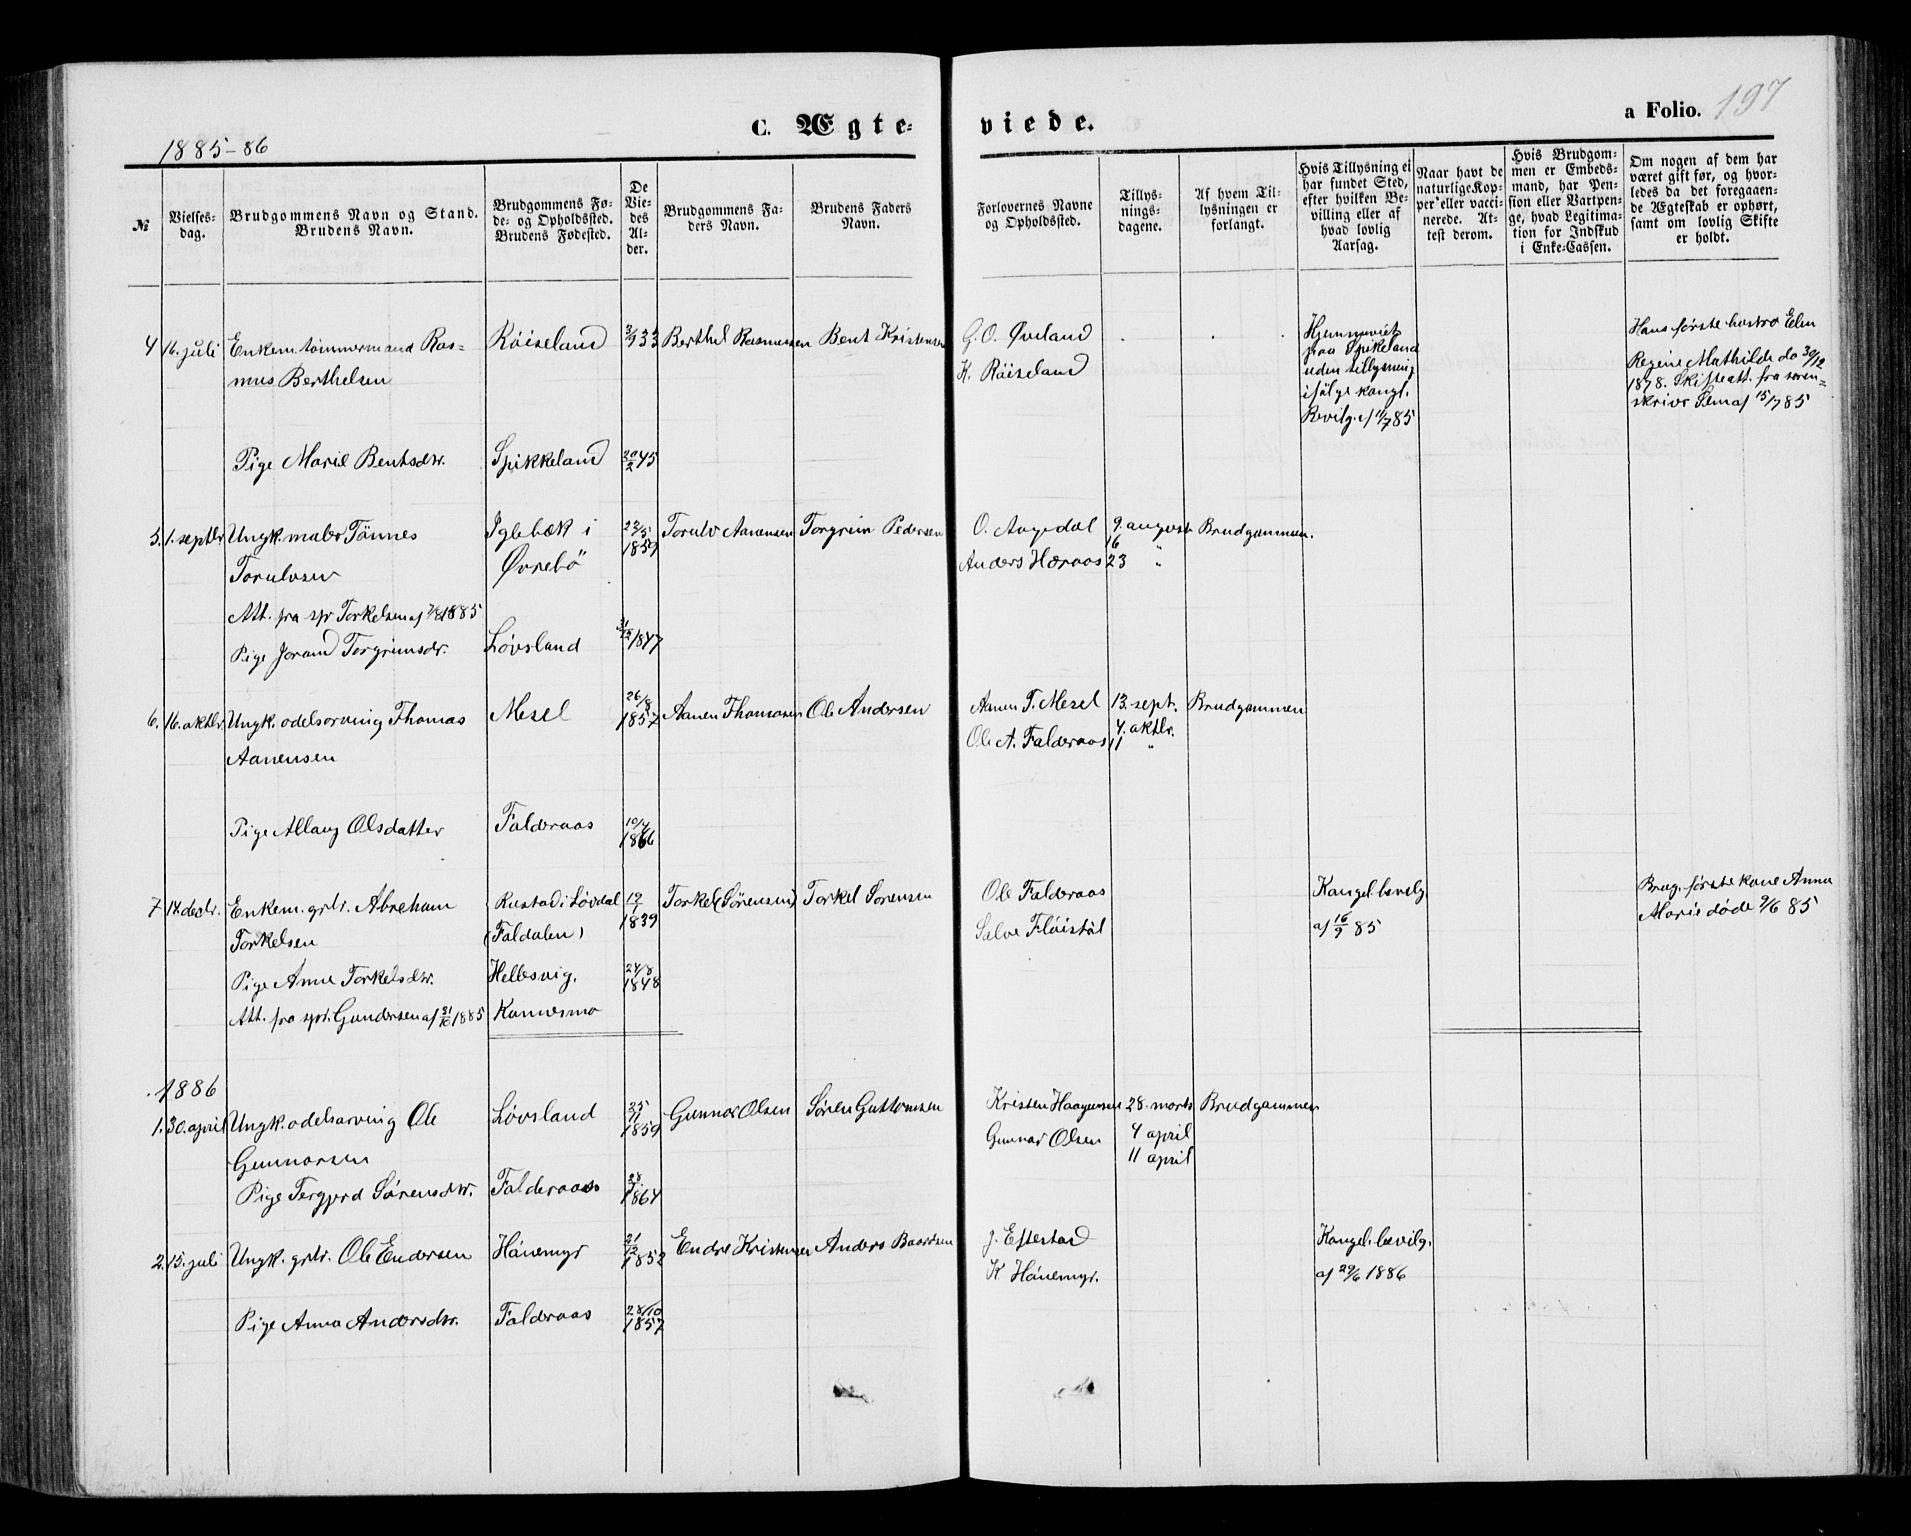 1885-86
C. Ægte-
viede.
a Folio. 197
№
Vielses-
dag.
Brudgommens Navn og Stand.
Brudens Navn.
Brudgommens Fø-
de- og Opholdssted.
Brudens Fødested.
De
Vie-
des
Al-
der.
Brudgommens Fa-
ders Navn.
Brudens Faders
Navn.
Forlovernes Navne
og Opholdssted.
Tillys-
nings-
dagene.
Af hvem Til-
lysningen er
forlangt.
Hvis Tillysning ei
har fundet Sted,
efter hvilken Be-
villing eller af
hvad lovlig
Aarsag.
Naar havt de
naturlige Kop-
per eller vacci-
nerede. At-
test derom.
Hvis Brudgom-
men er Embeds-
mand, har Pen-
sion eller Vartpen-
ge, hvad Legitima-
tion for Indskud
i Enke-Cassen.
Om nogen af dem har
været gift før, og hvor-
ledes da det foregaaen-
de Ægteskab er ophørt,
samt om lovlig Skifte
er holdt.
4 16. juli Enkem. tömmermand Ras-
mus Berthelsen
Röiseland 33 Berthel Rasmussen Bent Kristensen
G. O. Øveland
K. Röiseland
Hjemmeviet
paa Spikeland
uden tillysning
ifölge kongl.
Bevilg. af 11/7 85
Hans første hustro Elen
Regine Mathilde do 30/12
1878. Skifteatt. fra soren-
skriver af 15/7 85
Pige Marie Bentsdtr. Spikkeland 20/2 45
5. 1. septbr. Ungk. maler Tönnes
Torulvsen
Iglebæk i
Øvrebö
22/5
1859
Torulv Aanensen Torgrim Pedersen
O. Aagedal
Anders Hæraas
9. august
16
23 "
Brudgommen.
Att. fra spr Torkelsen af 1885
Pige Jorand Torgrimsdr. Lövsland 31/12 1847
6. 16. oktbr. Ungk. odelsarving Thomas
Aanensen
Mesel
26/8
1857
Aanen Thomasen Ole Andersen
Aanen T. Mesel
Ole A. Falderaas
13. sept.
4. oktbr.
11 "
Brudgommen
Pige Allaug Olsdatter Falderaas
10/4
1866
7 14. decbr. Enkem. grbr. Abraham
Torkelsen
Rustad i Lövdal
(Faldalen)
1839
Torkel (Sørensen) Torkel Sørensen
Ole Falderaas
Salve Flöistöl
Kongel. bevilg
af 16/9 85
Brug. første kone Anna
Marie døde 9/6 85
Pige Anne Torkelsdtr. Hellesvig,
24/8
1848
Att. fra spr. Gundersen af 31/10 1885
1886
1. 30. april Ungk. odelsarving Ole
Gunnarsen
Lövsland
25/11
1859
Gunnar Olsen Sören Guttormsen
Kristen Haagensen
Gunnar Olsen
28. marts
4 april
11 april
Brudgommen
Pige Tergjerd Sörensdtr. Falderaas
1864
2. 15. juli Ungk. grbr. Ole Endersen Hånemyr
21/12
1852
Endre Kristensen Anders Baardsen
J. Eftestad
K Hånemyr.
Kongel. bevilg.
af 29/6 1886
Pige Anna Andersdtr. Falderaas
28/10
1857